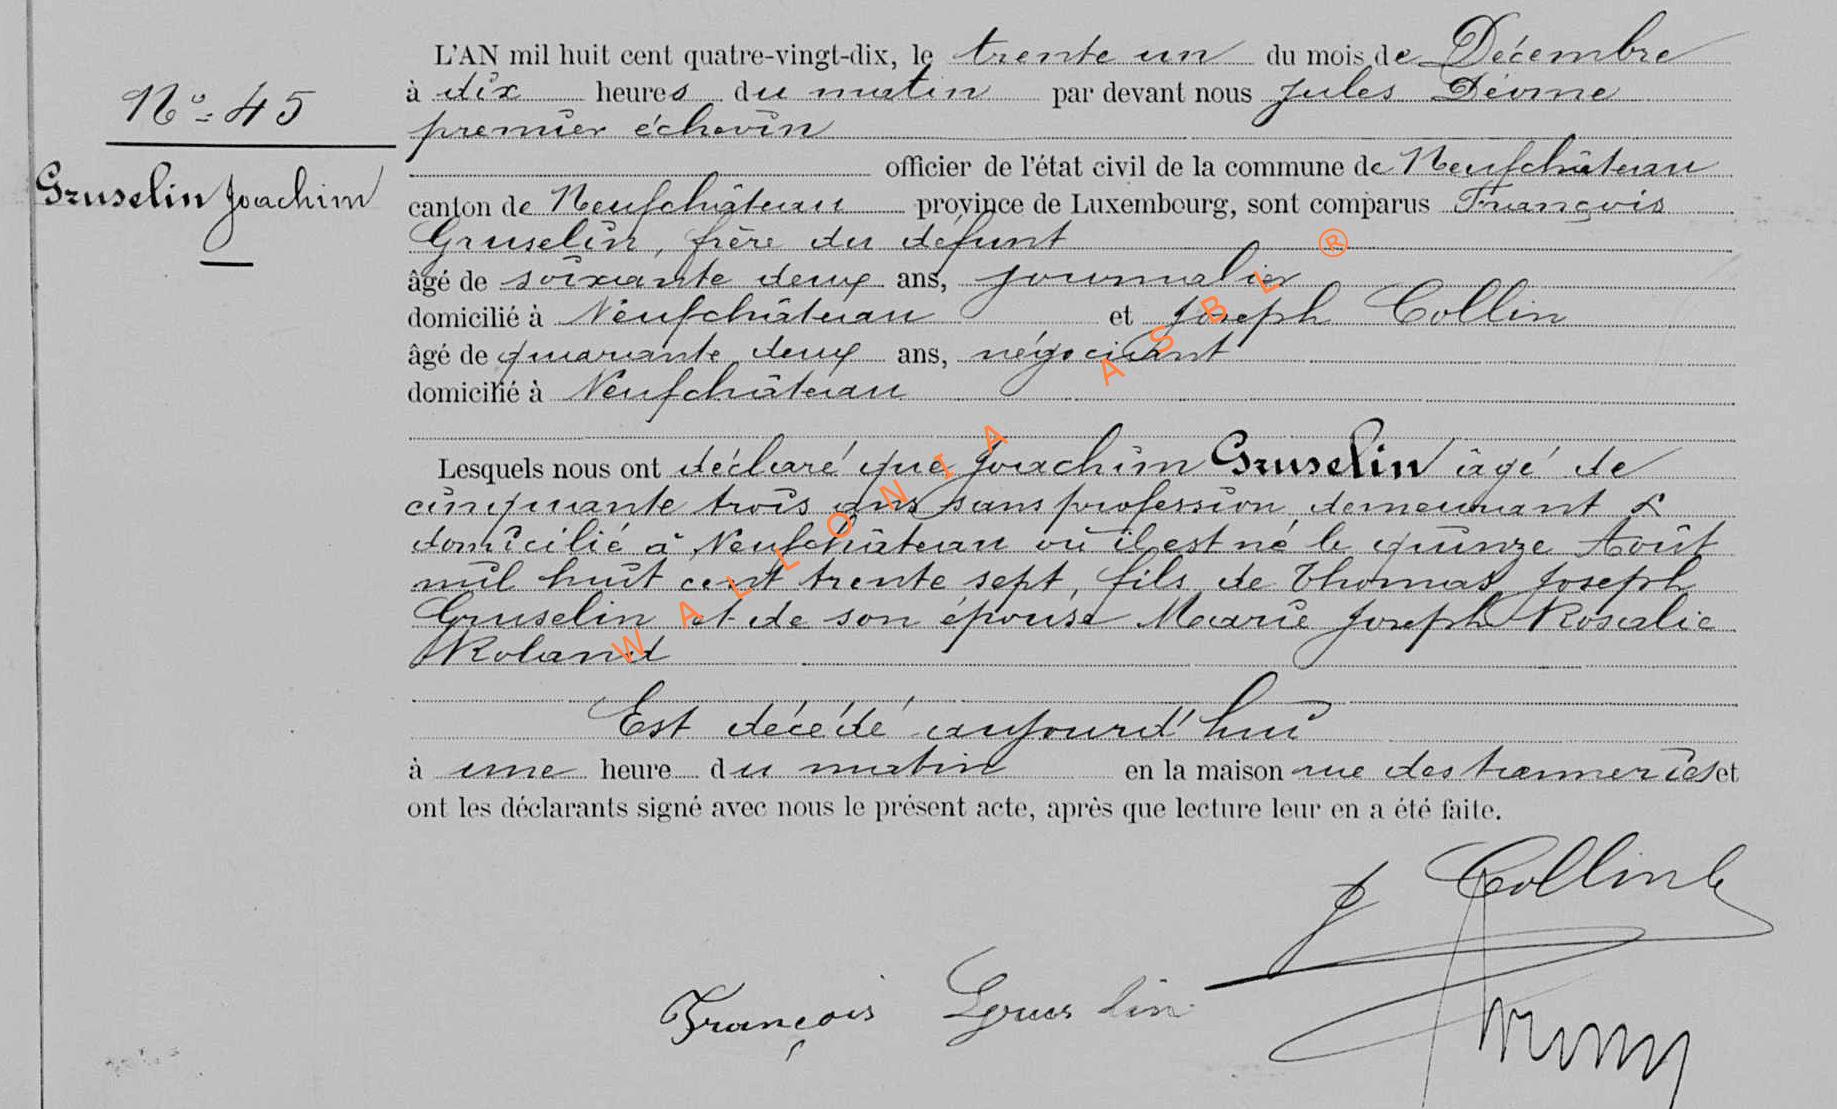 L'AN mil huit cent quatre-vingt-dix, le trente un du mois de Décembre
N° 45
à dix heures du matin par devant nous Jules Déome
premier échevin
officier de l'état civil de la commune de Neufchâteau
Gruselin Joachim
canton de Neufchâteau province de Luxembourg, sont comparus François
Gruselin, frère du défunt
âgé de soixante deux ans, journalier
domicilié à Neufchâteau et Joseph Collin
âgé de quarante deux ans, négociant
domicilié à Neufchâteau
Lesquels nous ont déclaré que Joachim Gruselin âgé de
cinquante trois ans sans profession, demeurant &
domicilié à Neufchâteau où il est né le quinze Août
mil huit cent trente sept, fils de Thomas Joseph
Gruselin et de son épouse Marie Joseph Rosalie
Roland
Est décédé aujourd'hui
à une heure du matin en la maison rue des tanneries et
ont les déclarants signé avec nous le présent acte, après que lecture leur en a été faite.
J Collin
François Gruslin
WALLONIA ASBL ®